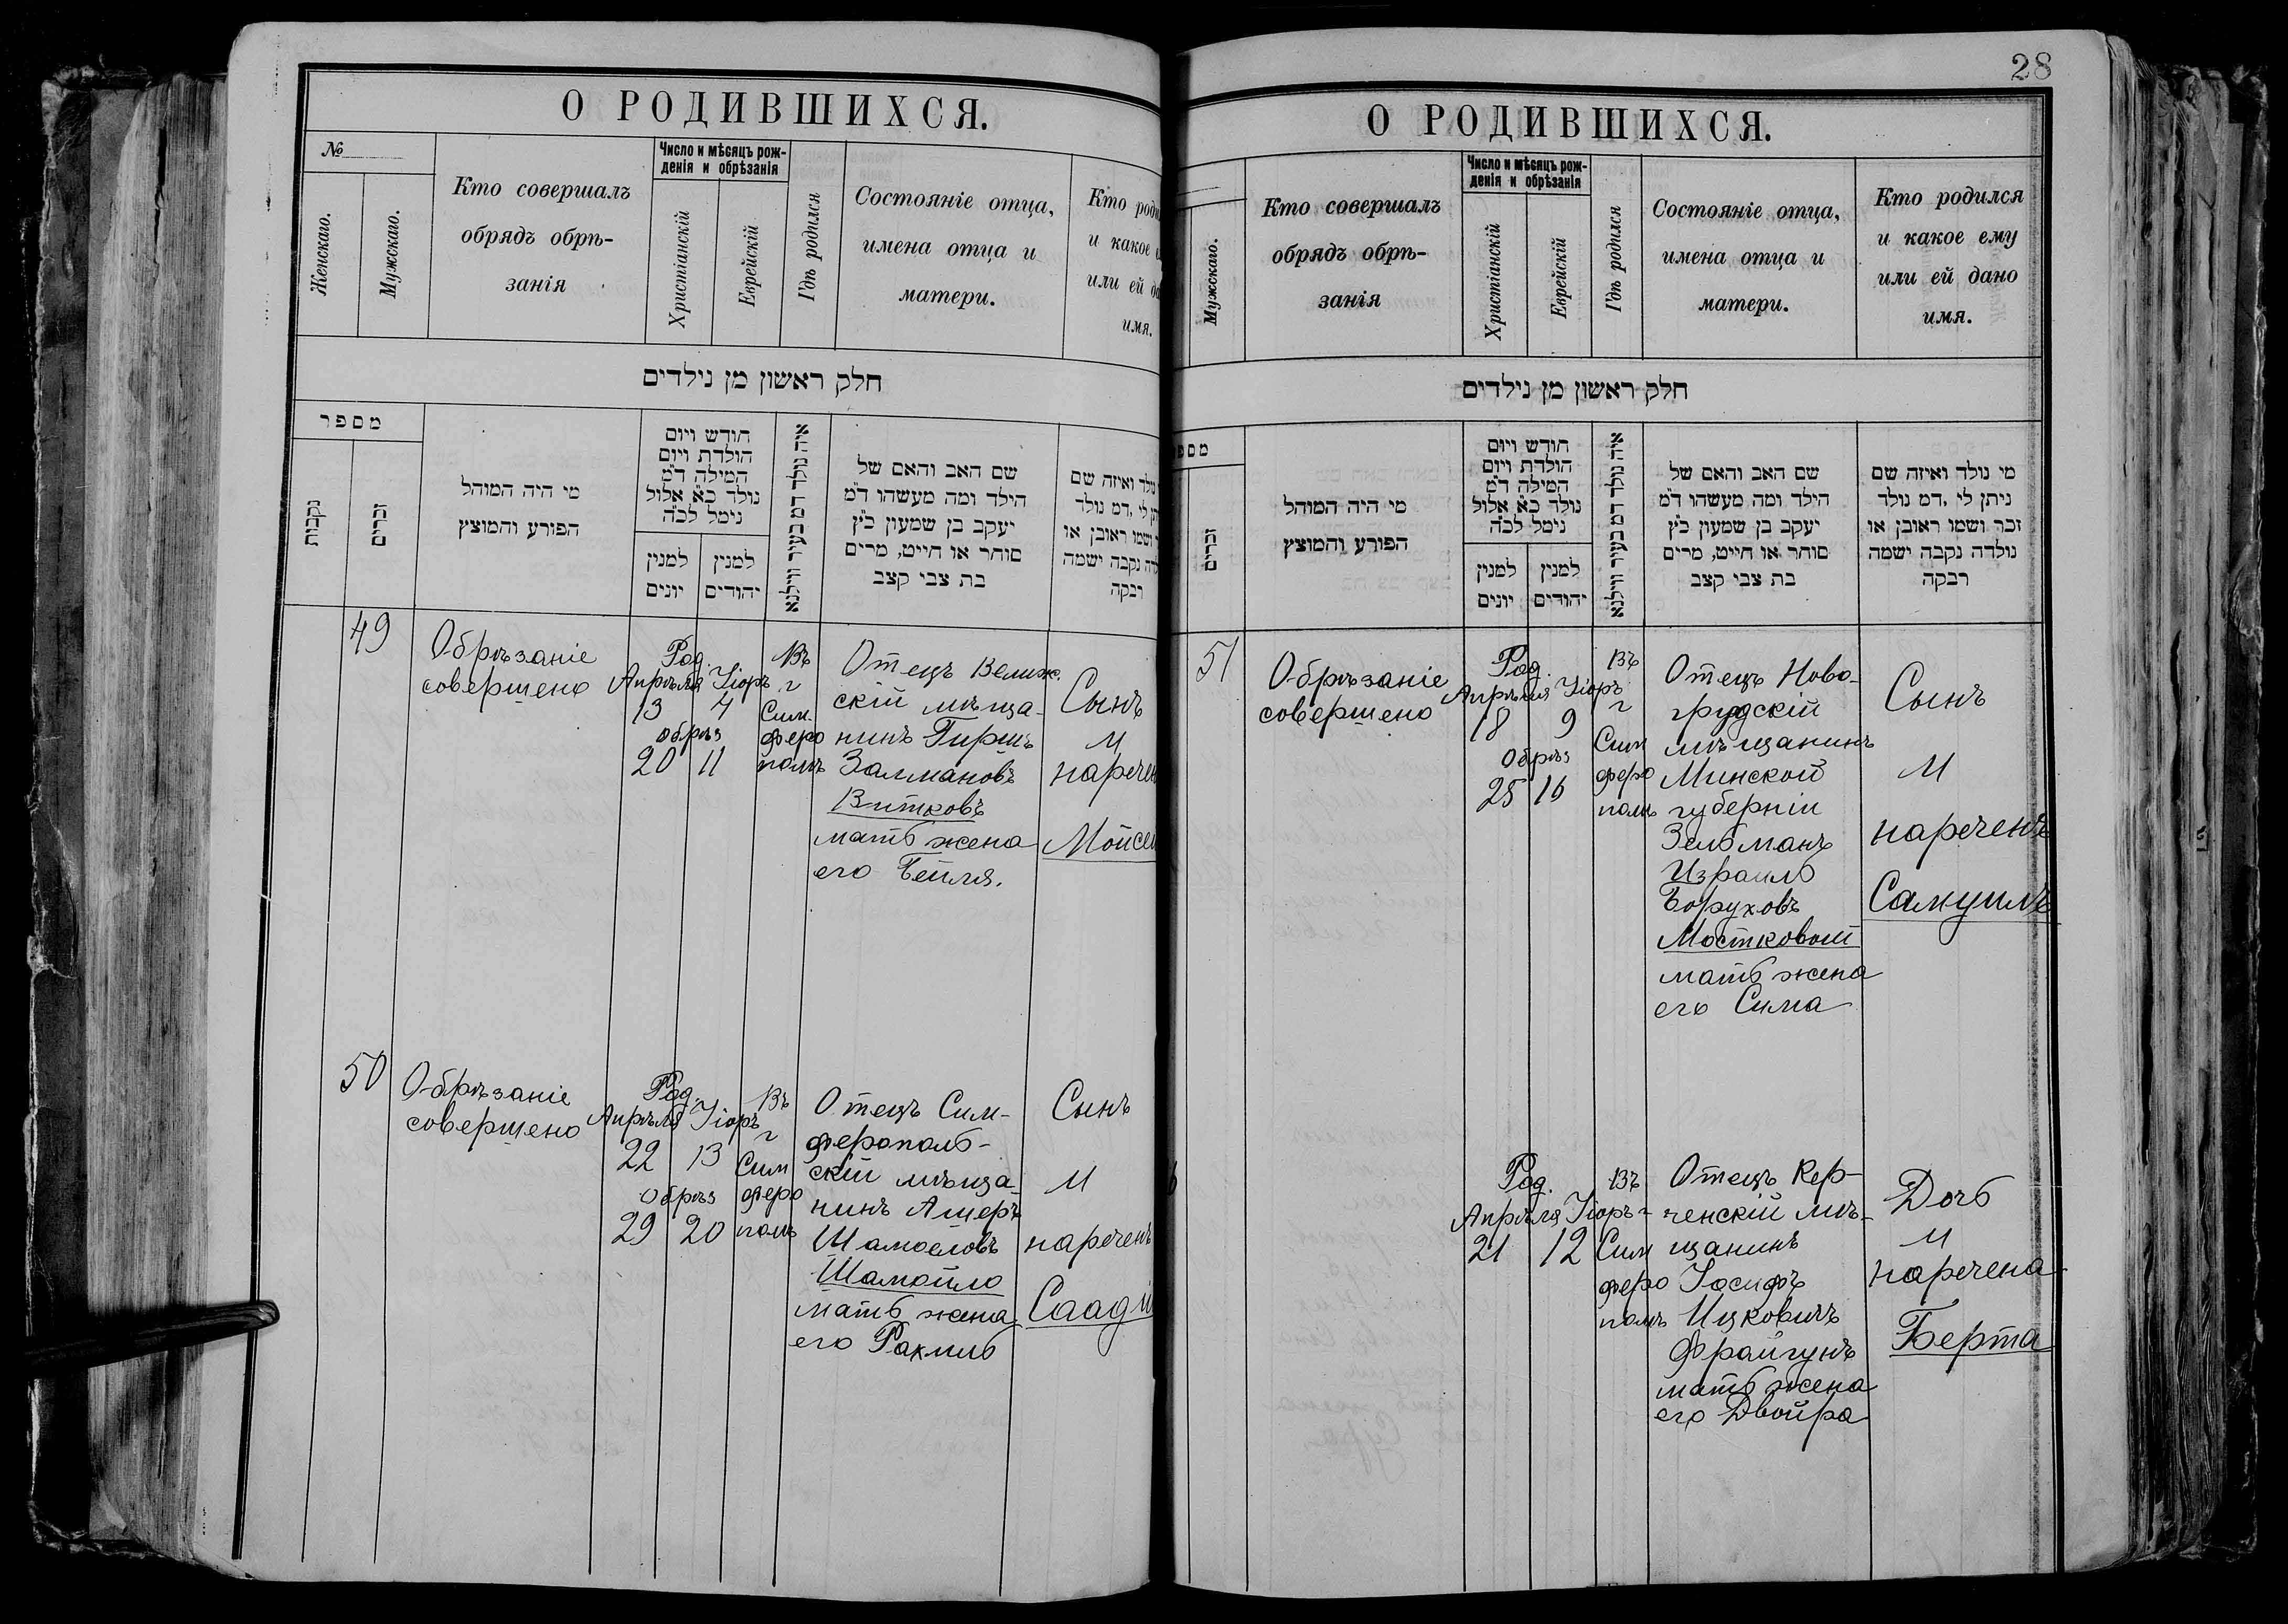 О РОДИВШИХСЯ.
№
Женскаго.
Мужскаго.
Кто совершалъ
обрядъ обрѣ-
занія
Число и мѣсяцъ рож-
денія и обрѣзанія
Христіанскій
Еврейскій
Гдѣ родился
Состояніе отца,
имена отца и
матери.
Кто роди
и какое
или ей
имя.
חלק ראשון מן נילדים
מספר
נקבות
זכרים
מי היה המוהל
הפורע והמוצץ
חודש ויום
הולדת ויום
המילה ד"מ
נולד כ"א אלול
נימל לכ"ה
למנין
יונים
למנין
יהודים
איה נולד דמ בעיר ווילנא
שם האב והאם של
הילד ומה מעשהו ד"מ
יעקב בן שמעון כ"ץ
סוחר או חייט, מרים
בת צבי קצב
נולד ואיזה שם
לי ,דמ נולד
ושמו ראובן או
נקבה ישמה
רבקה
49
Обрѣзаніе
совершено
Род.
Апрѣля Іюръ
13 4
обрѣз
20 11
Въ
г
Сим
феро
полѣ
Отецъ Велиж.
скій мѣща-
нинъ Гиршъ
Залмановъ
Витковъ
мать жена
его Бейля.
Сынъ
М
наречен
Мойсе
50
Обрѣзаніе
совершено
Род.
Апрѣля Іюръ
22 13
обрѣз
29 20
Въ
г
Сим
феро
полѣ
Отецъ Сим-
ферополь-
скій мѣща-
нинъ Ашеръ
Шамоеловъ
Шамойло
мать жена
его Рахиль
Сынъ
М
нареченъ
Саадi
28
О РОДИВШИХСЯ.
Мужскаго.
Кто совершалъ
обрядъ обрѣ-
занія
Число и мѣсяцъ рож-
денія и обрѣзанія
Христіанскій
Еврейскій
Гдѣ родился
Состояніе отца,
имена отца и
матери.
Кто родился
и какое ему
или ей дано
имя.
חלק ראשון מן נילדים
מספ
זכרים
מי היה המוהל
הפורע והמוצץ
חודש ויום
הולדת ויום
המילה ד"מ
נולד כ"א אלול
נימל לכ"ה
למנין
יונים
למנין
יהודים
איה נולד דמ בעיר ווילנא
שם האב והאם של
הילד ומה מעשהו ד"מ
יעקב בן שמעון כ"ץ
סוחר או חייט, מרים
בת צבי קצב
מי נולד ואיזה שם
ניתן לי ,דמ נולד
זכר ושמו ראובן או
נולדה נקבה ישמה
רבקה
51
Обрѣзаніе
совершено
Род.
Апрѣля Іюръ
18 9
обрѣз
25 16
Въ
г
Сим
феро
полѣ
Отецъ Ново-
грудскій
мѣщанинъ
Минской
губерніи
Зельманъ
Израиль
Боруховъ
Мостковой
мать жена
его Сима
Сынъ
М
нареченъ
Самуилъ
Род.
Апрѣля Іюръ
21 12
Въ
г
Сим
феро
полѣ
Отецъ Кер-
ченскій мѣ-
щанинъ
Іосифъ
Ицковичъ
Фрайгунъ
мать жена
его Двойра
Дочь
М
наречена
Берта